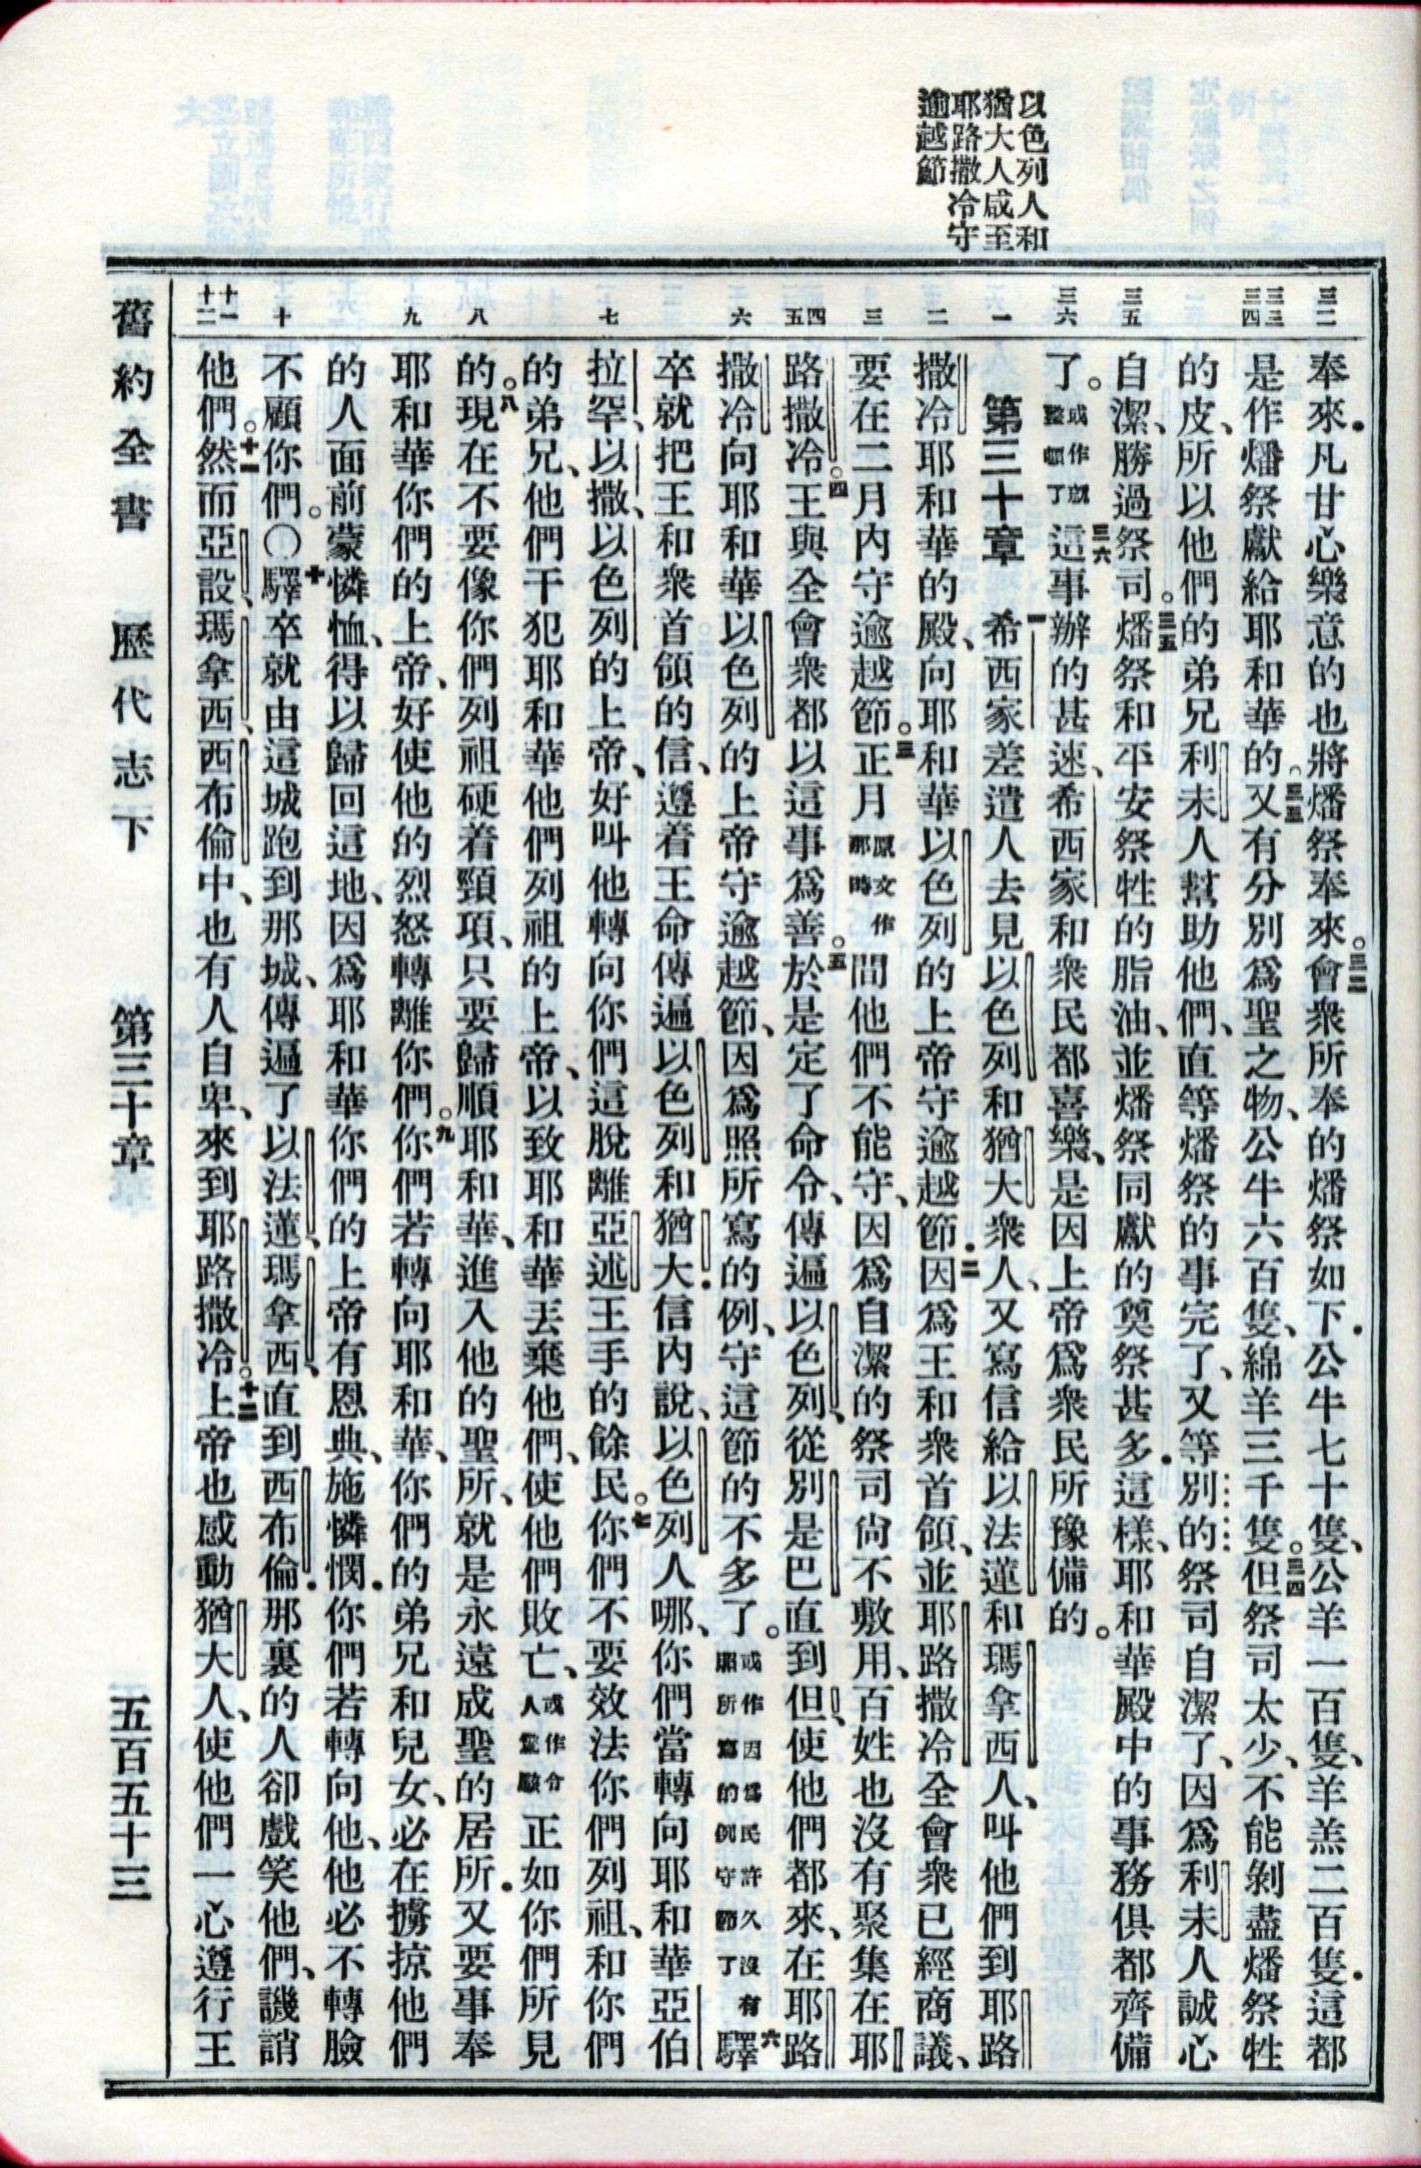 以色列人和
猶大人咸至
耶路撒冷守
逾越節
三二
三三
三四
三五
三六
一
二
三
四
五
六
七
八
九
十
十一
十二
奉來.凡甘心樂意的也將燔祭奉來。三二會衆所奉的燔祭如下.公牛七十隻、公羊一百隻、羊羔二百隻.這都
是作燔祭獻給耶和華的。三三又有分別爲聖之物、公牛六百隻、綿羊三千隻。三四但祭司太少、不能剝盡燔祭牲
的皮、所以他們的弟兄利未人幫助他們、直等燔祭的事完了、又等別的祭司自潔了、因爲利未人誠心
自潔、勝過祭司。三五燔祭和平安祭牲的脂油、並燔祭同獻的奠祭甚多.這樣、耶和華殿中的事務俱都齊備
了。或作就整頓了三六這事辦的甚速、希西家和衆民都喜樂、是因上帝爲衆民所豫備的。
第三十章 一希西家差遣人去見以色列和猶大衆人、又寫信給以法蓮和瑪拿西人、叫他們到耶路
撒冷耶和華的殿、向耶和華以色列的上帝守逾越節.二因爲王和衆首領、並耶路撒冷全會衆已經商議、
要在二月內守逾越節。三正月原文作那時間他們不能守、因爲自潔的祭司尙不敷用、百姓也沒有聚集在耶
路撒冷。四王與全會衆都以這事爲善。五於是定了命令、傳遍以色列、從別是巴直到但、使他們都來、在耶路
撒冷向耶和華以色列的上帝守逾越節、因爲照所寫的例、守這節的不多了。或作因爲民許久沒有照所寫的例守節了六驛
卒就把王和衆首領的信、遵着王命傳遍以色列和猶大.信內說、以色列人哪、你們當轉向耶和華亞伯
拉罕、以撒、以色列的上帝、好叫他轉向你們這脫離亞述王手的餘民。七你們不要效法你們列祖、和你們
的弟兄、他們干犯耶和華他們列祖的上帝、以致耶和華丟棄他們、使他們敗亡、或作令人驚駭正如你們所見
的。八現在不要像你們列祖硬着頸項、只要歸順耶和華、進入他的聖所、就是永遠成聖的居所.又要事奉
耶和華你們的上帝、好使他的烈怒轉離你們。九你們若轉向耶和華、你們的弟兄和兒女、必在擄掠他們
的人面前蒙憐恤、得以歸回這地、因爲耶和華你們的上帝有恩典、施憐憫.你們若轉向他、他必不轉臉
不顧你們。〇十驛卒就由這城跑到那城、傳遍了以法蓮、瑪拿西、直到西布倫.那裏的人卻戲笑他們、譏誚
他們。十一然而亞設、瑪拿西、西布倫中、也有人自卑、來到耶路撒冷。十二上帝也感動猶大人、使他們一心遵行王
舊約全書 歷代志下 第三十章 五百五十三